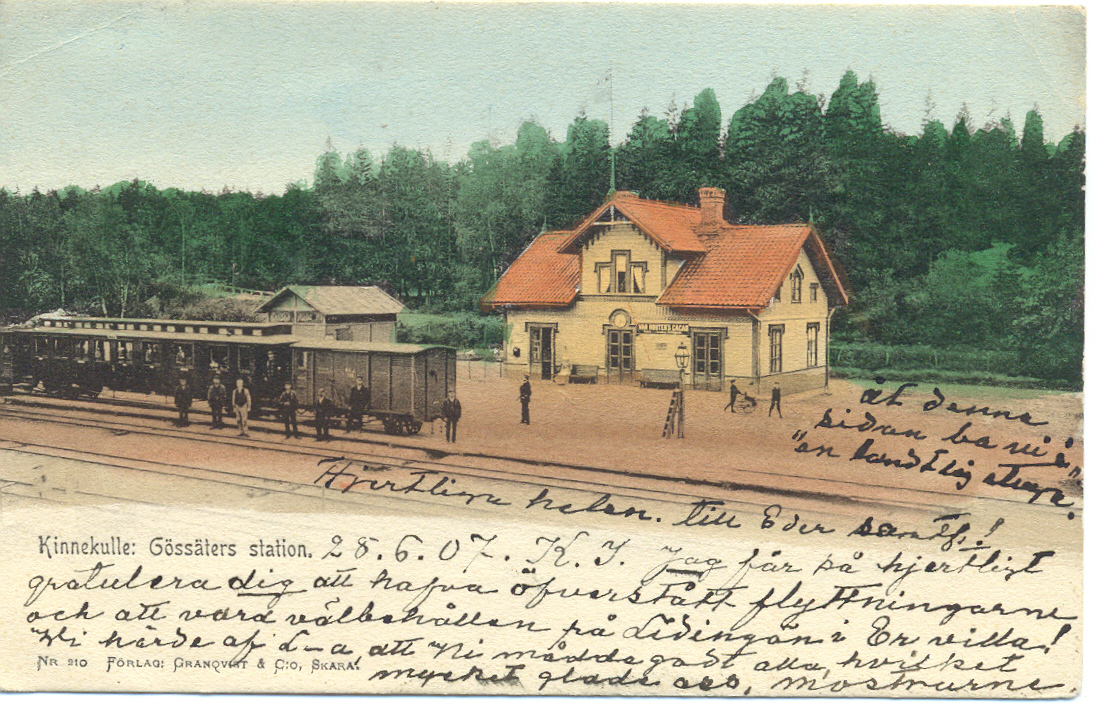 VAN HOUTEN'S CACAO
åt denna
sidan ba
"en landtlig
Hjertliga helsn. till Eder samtl.!
Kinnekulle: Gössäters station. 28.6.07. K. J. Jag får så hjertligt
gratulera dig att hafva öfverstått flyttningarne
och att vara välbehållen på Lidingön i Er villa!
Vi hörde af L-a att Ni mådde godt alla, hvilket
Nr 210 Förlag: Granqvist & C:o, Skara.
mycket glade oss, mostrarne.